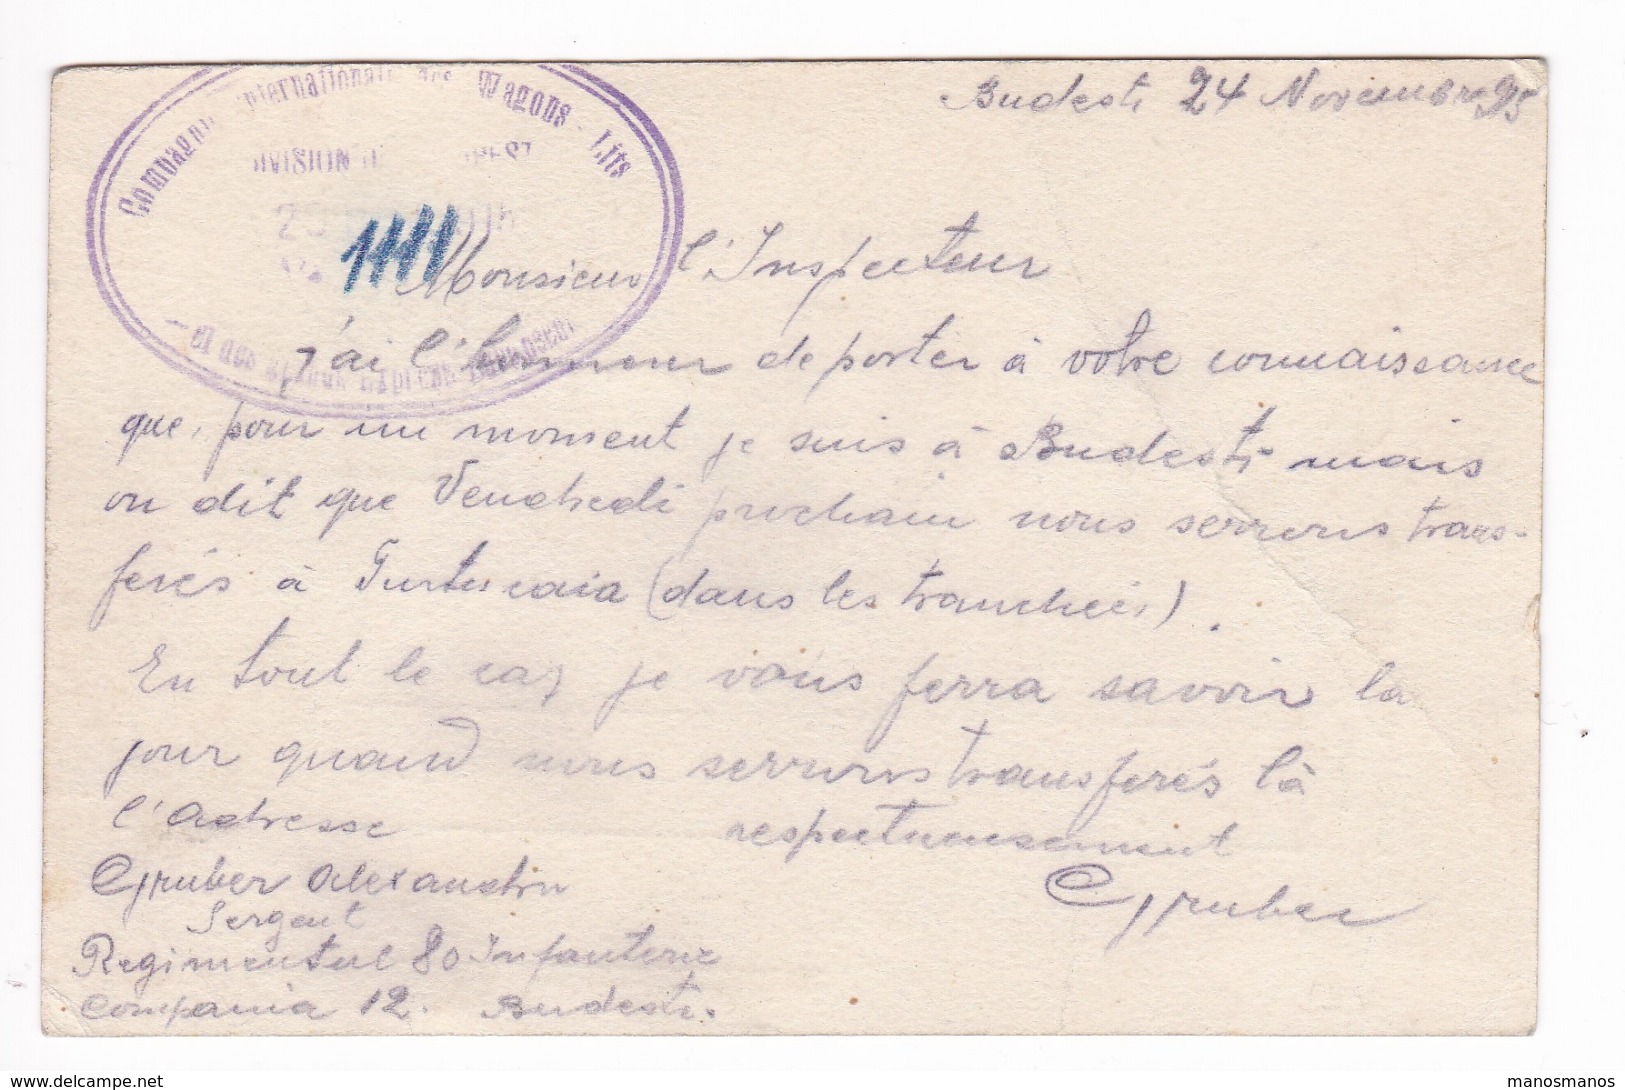 Compagnie Internationale des Wagons-Lits
DIVISION
1111
Budesti 24 Novembre 95
Monsieur l'Inspecteur
j'ai l'honneur de porter à votre connaissance
que, pour un moment je suis à Budesti mais
on dit que Vendredi prochain nous serrons trans-
ferés à Turtucaia (dans les tranchées).
En tout le cas je vous ferra savoir la
jour quand nous serrons transferés là
l'adresse
respectueusement
Gruber Alexandru
Gruber
Sergent
Regimentul 80 Infanterie
Compania 12. Budesti.
manosmanos